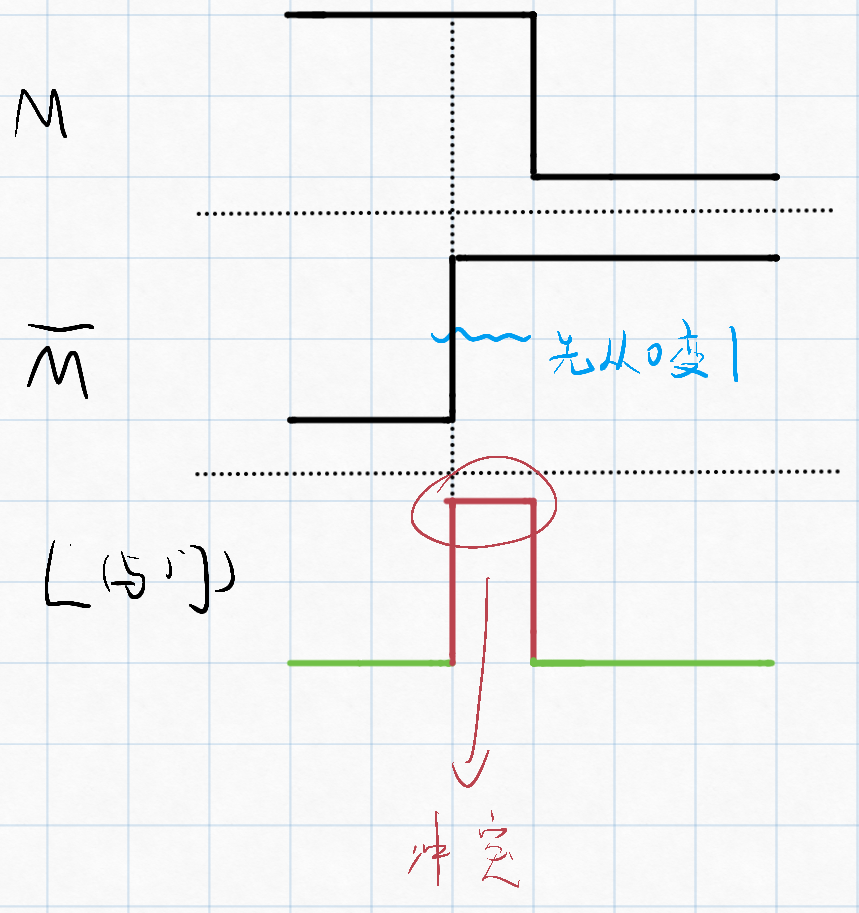 M
M̅
先从0变1
L(与门)
冲突